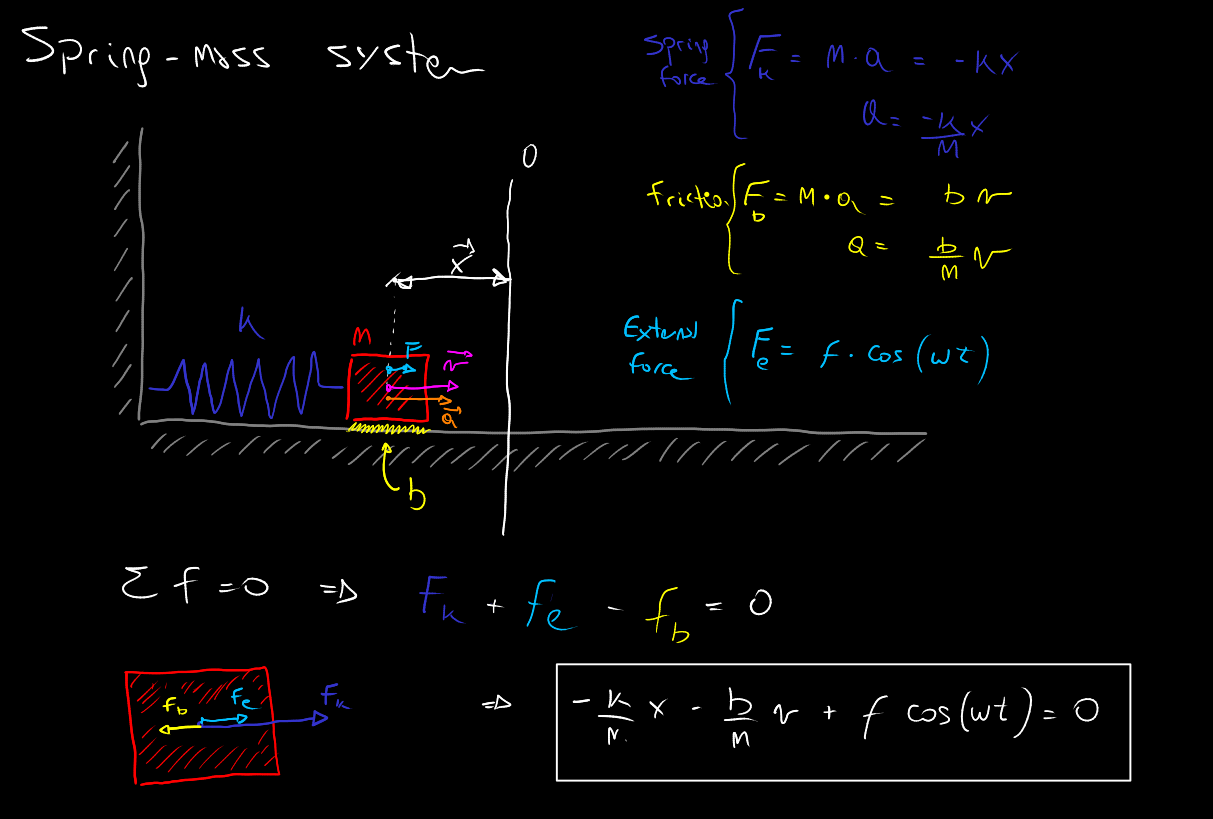 Spring-mass system
Spring force { F_k = M·a = -kx
a = -k/M x
Friction { F_b = M·a = b v
a = b/M v
External force { F_e = f·cos(wt)
0
x⃗
k
M
F
v⃗
a⃗
b
Σ f = 0 ⇒ F_k + f_e - f_b = 0
f_b F_e F_k
⇒ -k/M x - b/M v + f cos(wt) = 0